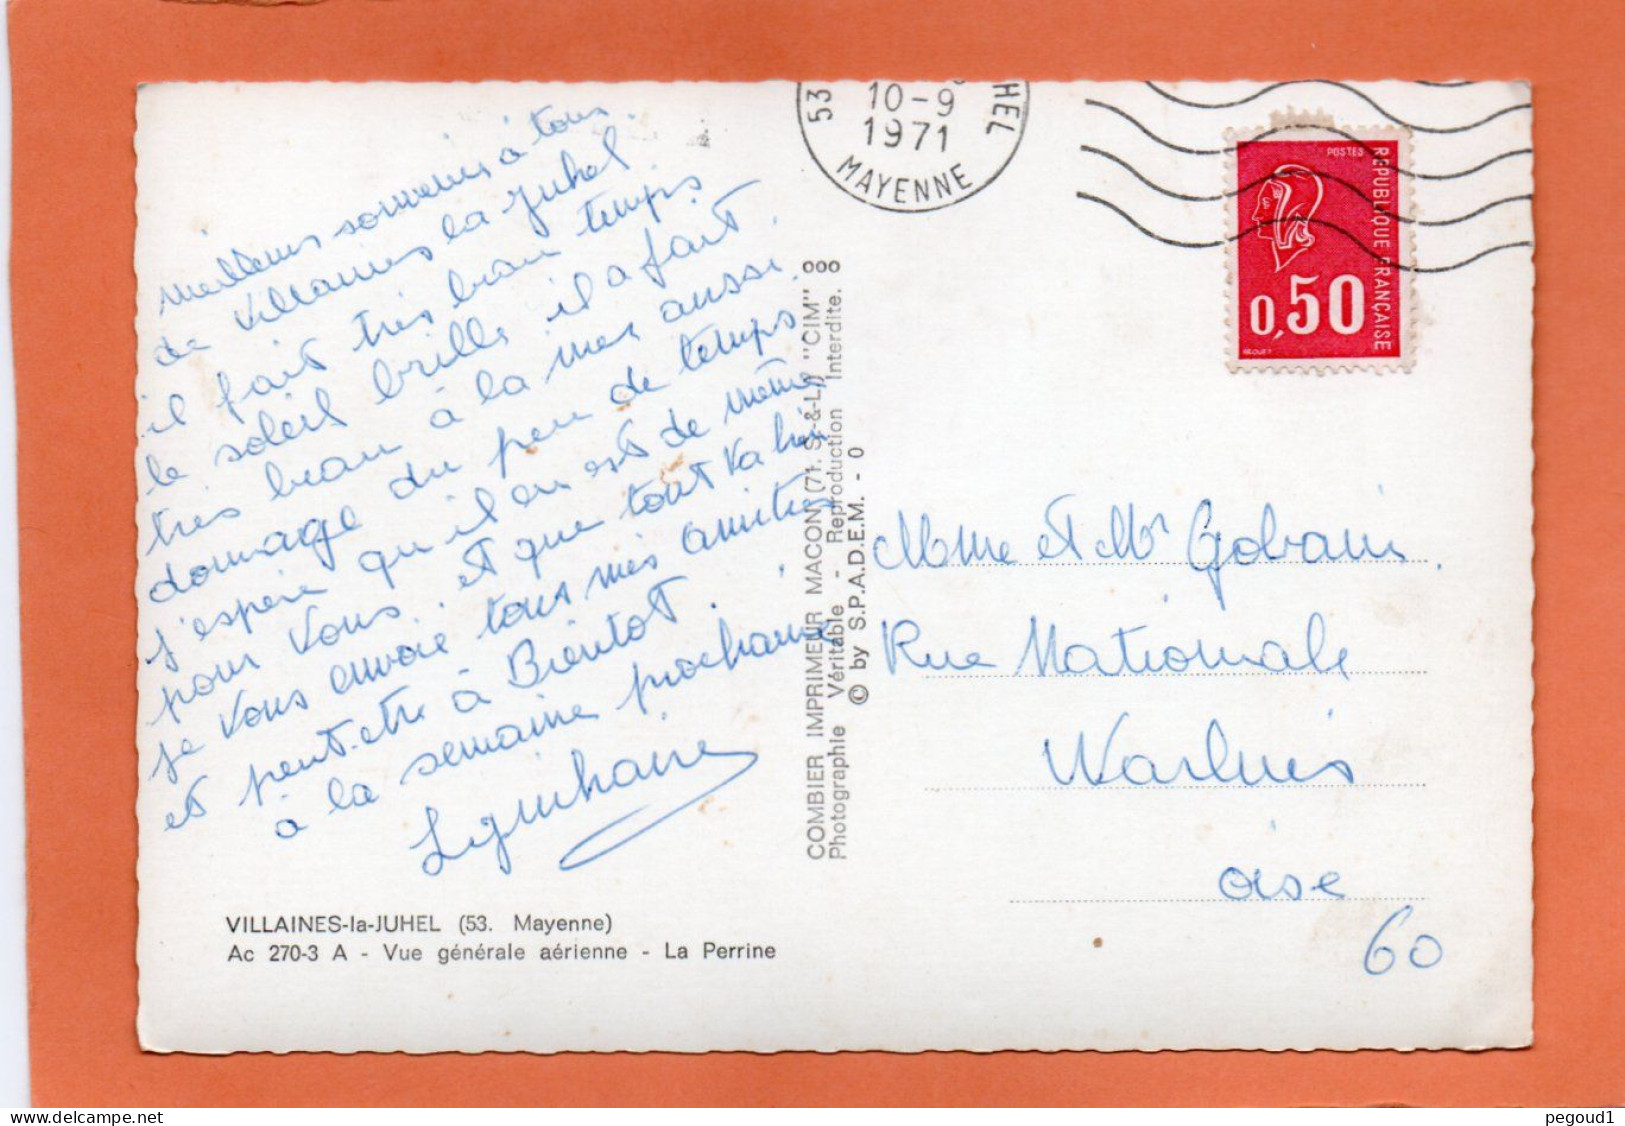 meilleurs souvenirs à tous
de Villaines la Juhel.
il fait très beau temps
le soleil brille il a fait
très beau à la mer aussi.
domage du peu de temps.
j'espère qu'il en est de même
pour vous. et que tout va bien
je vous envoie tous mes amitiés
et peut-être à Bientot.
à la semaine prochaine
VILLAINES-la-JUHEL (53. Mayenne)
Ac 270-3 A - Vue générale aérienne - La Perrine
COMBIER IMPRIMEUR MACON (71. S.-&-L.) "CIM" ooo
Photographie Véritable - Reproduction Interdite.
© by S.P.A.D.E.M. - 0
53 HEL
10-9
1971
MAYENNE
POSTES
REPUBLIQUE FRANÇAISE
0,50
BEQUET
Mme et Mr
Rue Nationale
Warluis
oise
60
delcampe.net
pegoud1